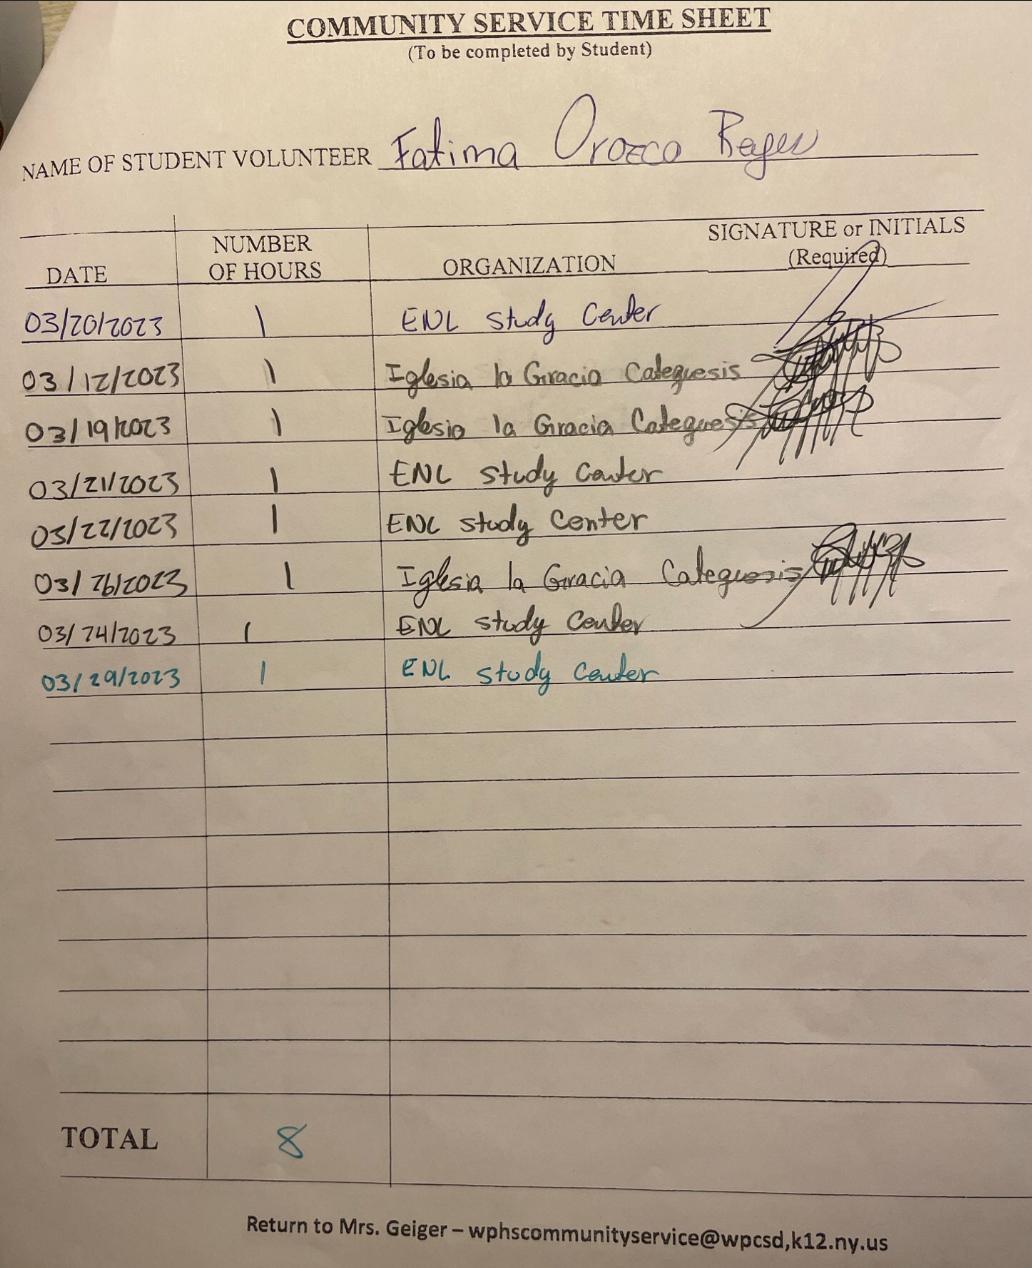 COMMUNITY SERVICE TIME SHEET
(To be completed by Student)
NAME OF STUDENT VOLUNTEER Fatima Orozco Reyes
DATE NUMBER OF HOURS ORGANIZATION SIGNATURE or INITIALS (Required)
03/20/2023 1 ENL Study Center
03/12/2023 1 Iglesia la Gracia Catequesis
03/19/2023 1 Iglesia la Gracia Catequesis
03/21/2023 1 ENL Study Center
03/22/2023 1 ENL study Center
03/26/2023 1 Iglesia la Gracia Catequesis
03/24/2023 1 ENL study Center
03/29/2023 1 ENL study Center
TOTAL 8
Return to Mrs. Geiger – wphscommunityservice@wpcsd,k12.ny.us